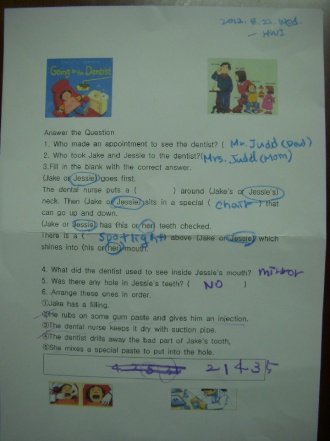 2012. 8. 22. Wed.
- HWJ
Going to the Dentist
Answer the Question
1. Who made an appointment to see the dentist? ( Mr. Judd (Dad)
2. Who took Jake and Jessie to the dentist?( Mrs. Judd (Mom)
3.Fill in the blank with the correct answer.
(Jake or Jessie) goes first.
The dental nurse puts a ( ) around (Jake's or Jessie's)
neck. Then (Jake or Jessie) sits in a special ( chair ) that
can go up and down.
(Jake or Jessie) has (his or her) teeth checked.
There is a ( Spotlight ) above (Jake or Jessie) which
shines into (his or her) mouth.
4. What did the dentist used to see inside Jessie's mouth? mirror
5. Was there any hole in Jessie's teeth? ( NO )
6. Arrange these cries in order.
①Jake has a filling.
②He rubs on some gum paste and gives him an injection.
③The dental nurse keeps it dry with suction pipe.
④The dentist drills away the bad part of Jake's tooth,
⑤She mixes a special paste to put into the hole.
2 1 4 3 5